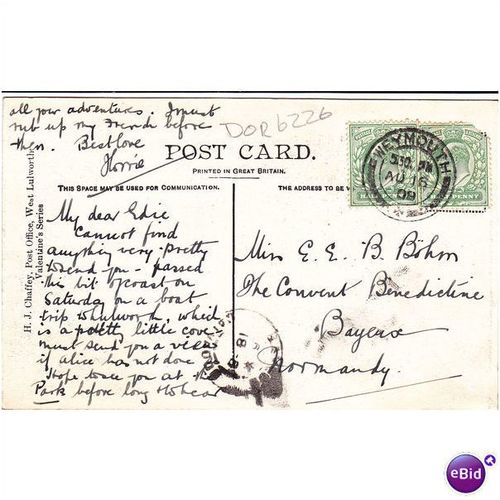 all your adventures. I must
rub up my French before
then. Best love
Florrie
DOR6226
POST CARD.
PRINTED IN GREAT BRITAIN.
THIS SPACE MAY BE USED FOR COMMUNICATION.
THE ADDRESS TO BE
H. J. Chaffey, Post Office, West Lulworth.
Valentine's Series
WEYMOUTH
AU 16
09
HALF
PENNY
My dear Edie
Cannot find
anything very pretty
to send you - passed
this bit of coast on
Saturday on a boat
trip to Lulworth, which
is a pretty little cove
must send you a view
if Alice has not done
Hope to see you at the
Park before long to hear
Miss E. E. B. Böhm
The Convent Benedictine
Bayeux
Normandy.
18
eBid